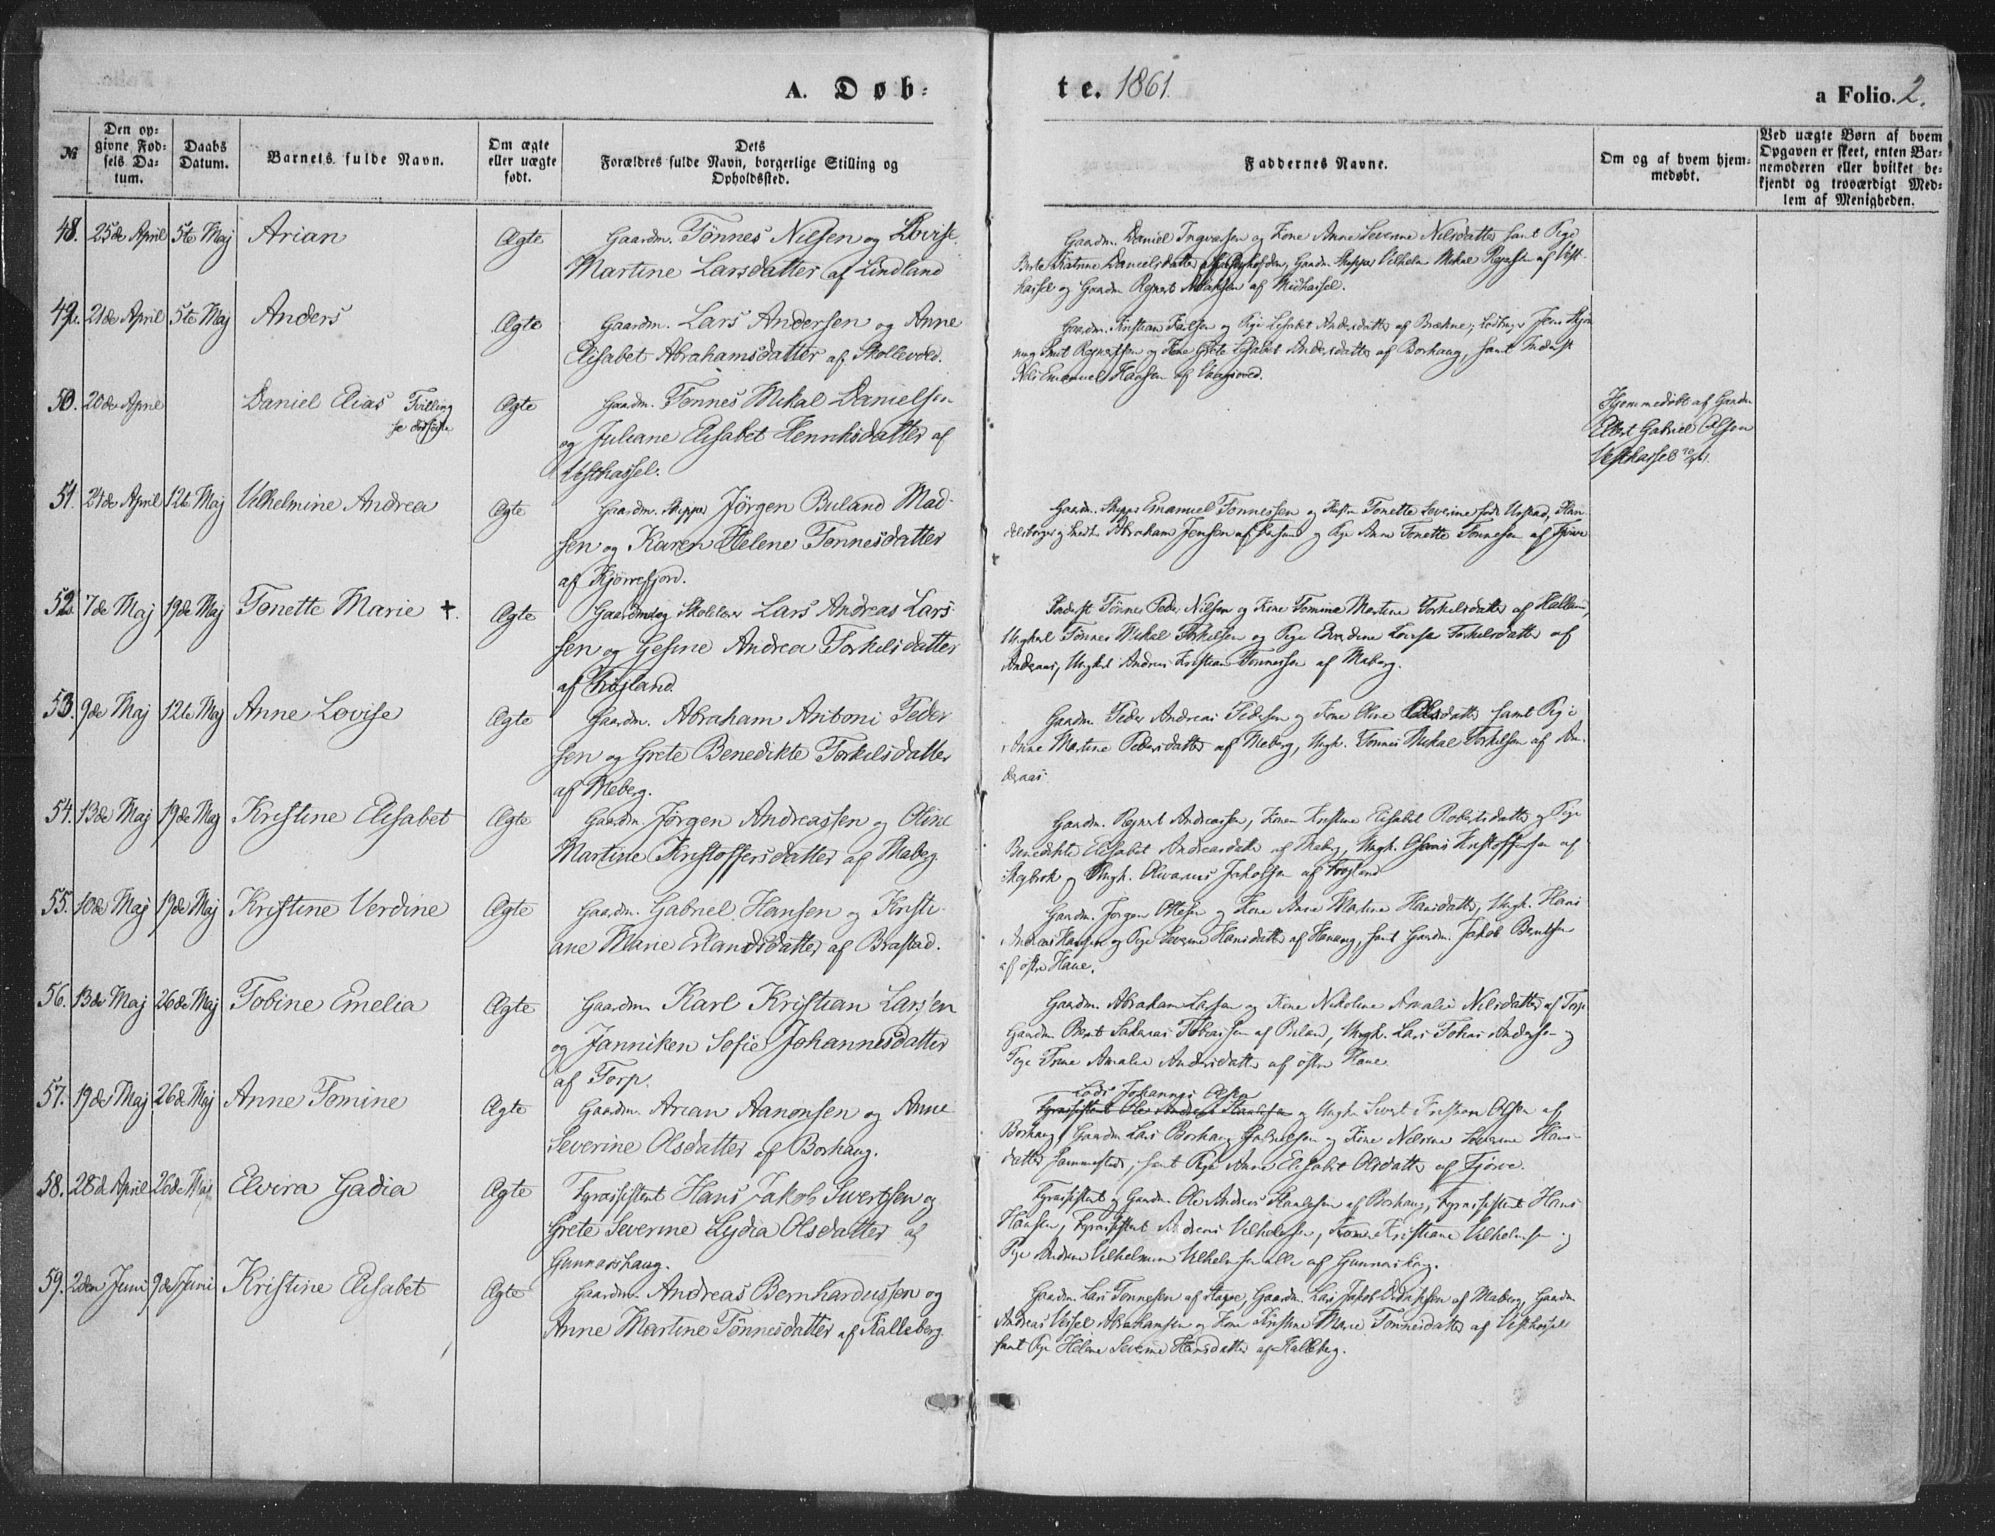 A. Døb-
te. 1861.
a Folio. 2.
№
Den op-
givne Fød-
sels Da-
tum.
Daabs
Datum.
Barnets fulde Navn.
Om ægte
eller uægte
født.
Dets
Forældres fulde Navn, borgerlige Stilling og
Opholdssted.
Faddernes Navne.
Om og af hvem hjem-
medøbt.
Ved uægte Børn af hvem
Opgaven er skeet, enten Bar-
nemoderen eller hvilket be-
kjendt og troværdigt Med-
lem af Menigheden.
48. 25de April 5te Maj Arian Ægte Gaardm. Tønnes Nilsen og Lovise
Martine Larsdatter af Lindland
Gaardm. Daniel Ingvarsen og Kone Anne Severine Nilsdatter samt Pige
Berte Katrine Danielsdatter Gaardm. Skipper Vilhelm Mikal af Vest-
hassel og Gaardm Regnert af Midhassel.
49. 21de April 5te Maj Anders Ægte Gaardm. Lars Andersen og Anne
Elisabet Abrahamsdatter af Skollevold.
Gaardm. Kristian og Pige Elisabet Andersdatter af Brækne, Jens
Regnertsen og Kone Grete Elisabet Andersdatter af Borhaug, samt Inderst
Nils Emanuel Hansen af
50. 20de April Daniel Elias Tvilling
Ægte Gaardm. Tønnes Mikal Danielsen
og Juliane Elisabet Henriksdatter af
Vesthassel.
Hjemmedøbt af Gaardm
Ellert Gabriel Olsen
Vesthassel
51. 24de April 12te Maj Vilhelmine Andrea Ægte Gaardm. Skipper Jørgen Buland Mad-
sen og Karen Helene Tønnesdatter
af Kjørrefjord.
Gaardm. Skipper Emanuel Tønnessen og Tonette Severine født Han-
delsborger Abraham Jensen af Farsund og Pige Anne Tonette Tønnesen af
52. 7de Maj 19de Maj Tonette Marie †. Ægte Gaardm og Skolelærer Lars Andreas Lars-
sen og Gesine Andrea Torkelsdatter
af
Inderst Tønnes Peder Nilsen og Kone Tomine Martine Torkelsdatter af
Ungkarl Tønnes Mikal Torkelsen og Pige Lovise Torkelsdatter af
Andraas, Ungkarl Andreas Kristian Tønnessen af Maberg.
53. 9de Maj 12te Maj Anne Lovise Ægte Gaardm. Abraham Antoni Peder-
sen og Grete Benedikte Torkelsdatter
af Meberg.
Gaardm. Peder Andreas Pedersen og Kone Oline Olsdatter samt Pige
Anne Martine Pedersdatter af Meberg, Ungk. Tønnes Mikal Torkelsen af An-
deraas.
54. 13de Maj 19de Maj Kristine Elisabet Ægte Gaardm. Jørgen Andreassen og Oline
Martine Kristoffersdatter af Maberg
Gaardm. Regnert Andreassen, Konen Kristine Elisabet Robertsdatter og Pige
Benedikte Elisabet Andreasdatter af Maberg, Ungk. Kristoffersen af
Skeibrok og Ungk. Olivarius Jakobsen af
55. 10de Maj 19de Maj Kristine Verdine Ægte Gaardm. Gabriel Hansen og Kristi-
ane Marie Erlandsdatter af Brastad.
Gaardm. Jørgen Ottesen og Kone Anne Martine Hansdatter, Ungk. Hans
Andreas Hansen og Pige Severine Hansdatter af Hanang, samt Gaardm. Jakob Berntsen
af østre Hane.
56. 13de Maj 26de Maj Tobine Emelia Ægte Gaardm Karl Kristian Larssen
og Janniken Sofie Johannesdatter
af Torp.
Gaardm. Abraham Larsen og Kone Nikoline Amalie Nilsdatter af Torp
Gaardm Bernt Sakarias Tobiassen af Buland, Ungk. Lars Tobias Andersen og
Pige Trine Amalie Andersdatter af østre Hane
57. 19de Maj 26de Maj Anne Tomine Ægte Gaardm. Arian Aanonsen og Anne
Severine Olsdatter af Borhaug.
Lods Johannes Olsen
Fyrassistent Ole Andreas Stanlesen og Ungk Sivert Olsen af
Borhaug, Gaardm Lars Borhaug Gabrielsen og Kone Severine Hans-
datter sammesteds, samt Pige Anne Elisabet Olsdatter af Fjørve.
58. 28de April 26de Maj Elvira Gadia Ægte Fyrassistent Hans Jakob Sivertsen og
Grete Severine Lydia Olsdatter af
Gunnarshaug.
Fyrassistent og Gaardm. Ole Andreas Stanlesen af Borhaug, Fyrassistent Hans
Hansen, Fyrassistent Andreas Vilhelmsen, Kristiane Vilhelmsen og
Pige Andrea Vilhelmine Vilhelmsen alle af Gunnarshaug.
59. 2den Juni 9de Juni Kristine Elisabet Ægte Gaardm. Andreas Bernhardussen og
Anne Martine Tønnesdatter af Kalleberg
Gaardm. Lars Tønnessen af Gaardm. Lars Jakob af Maberg, Gaardm
Andreas Abrahamsen og Kone Kristine Marie Tønnesdatter af Vesthassel
samt Pige Helene Severine Hansdatter af Kalleberg.